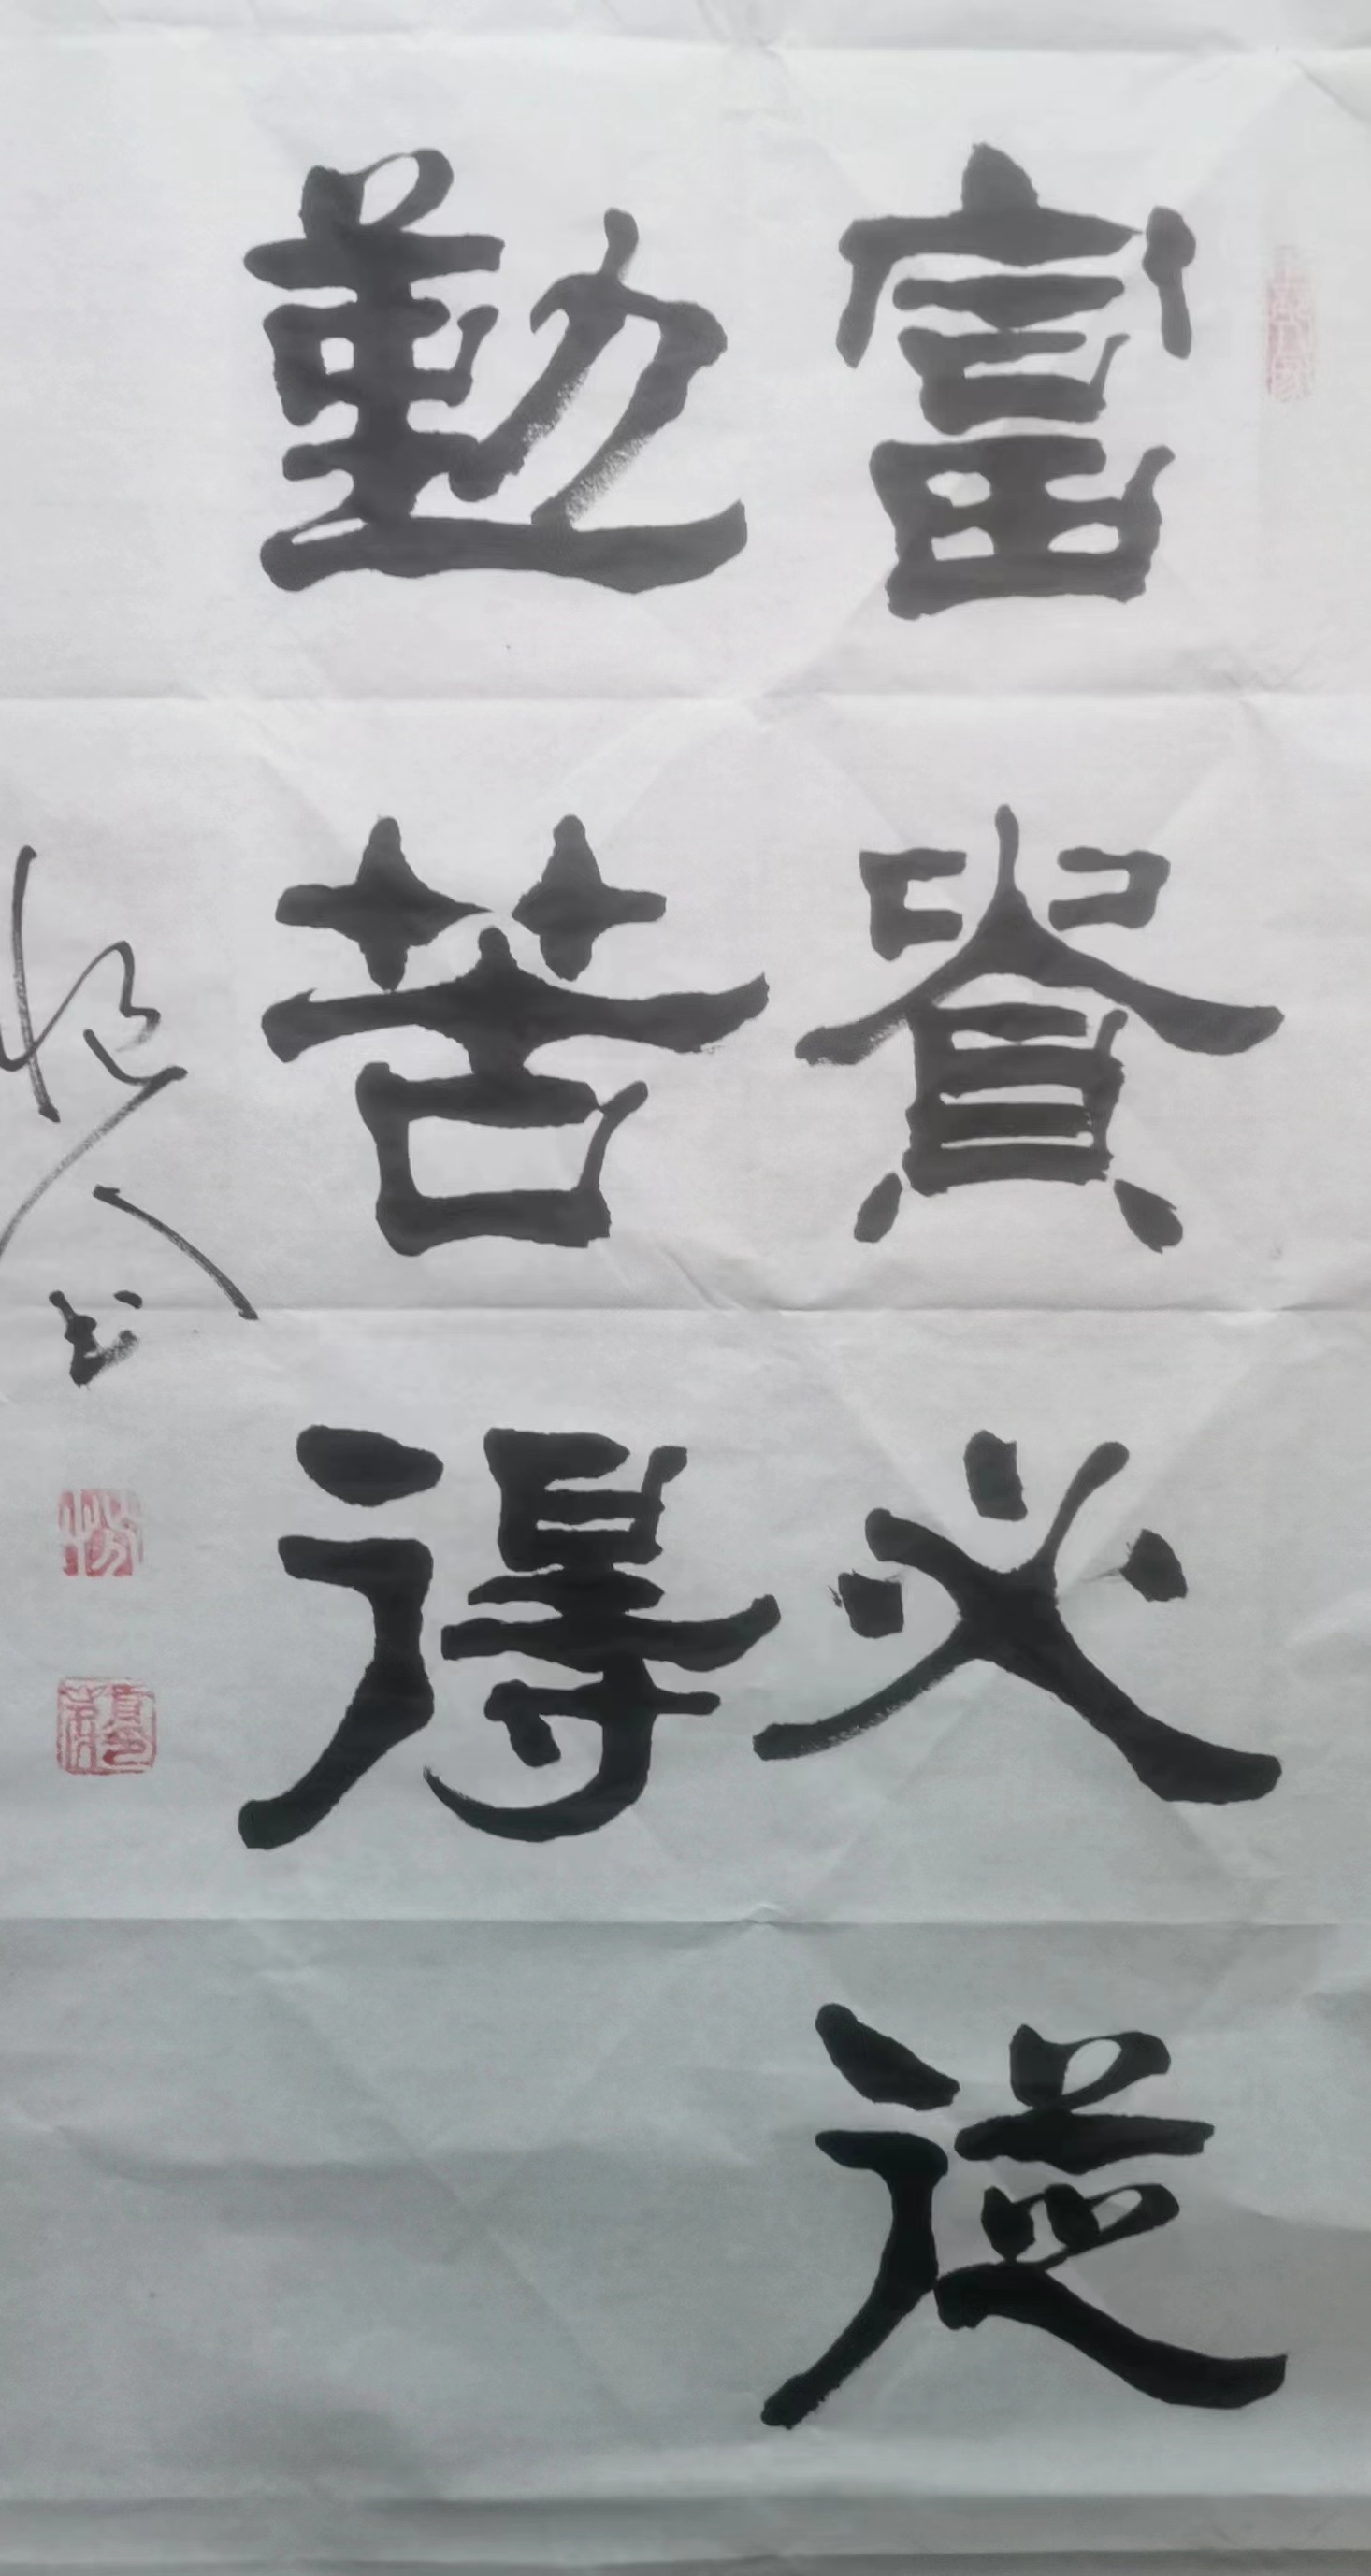 富貴必從
勤苦得